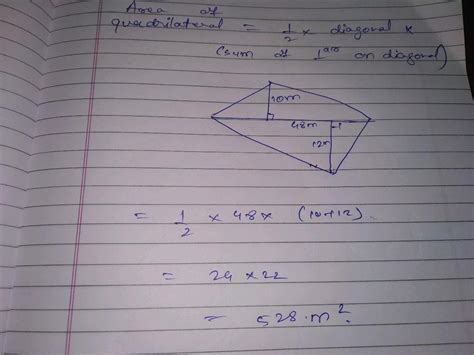 Area of
quadrilateral = 1/2 × diagonal ×
(sum of ⊥ars on diagonal)
10m
48m
12m
= 1/2 × 48 × (10+12)
= 24 × 22
= 528 m².